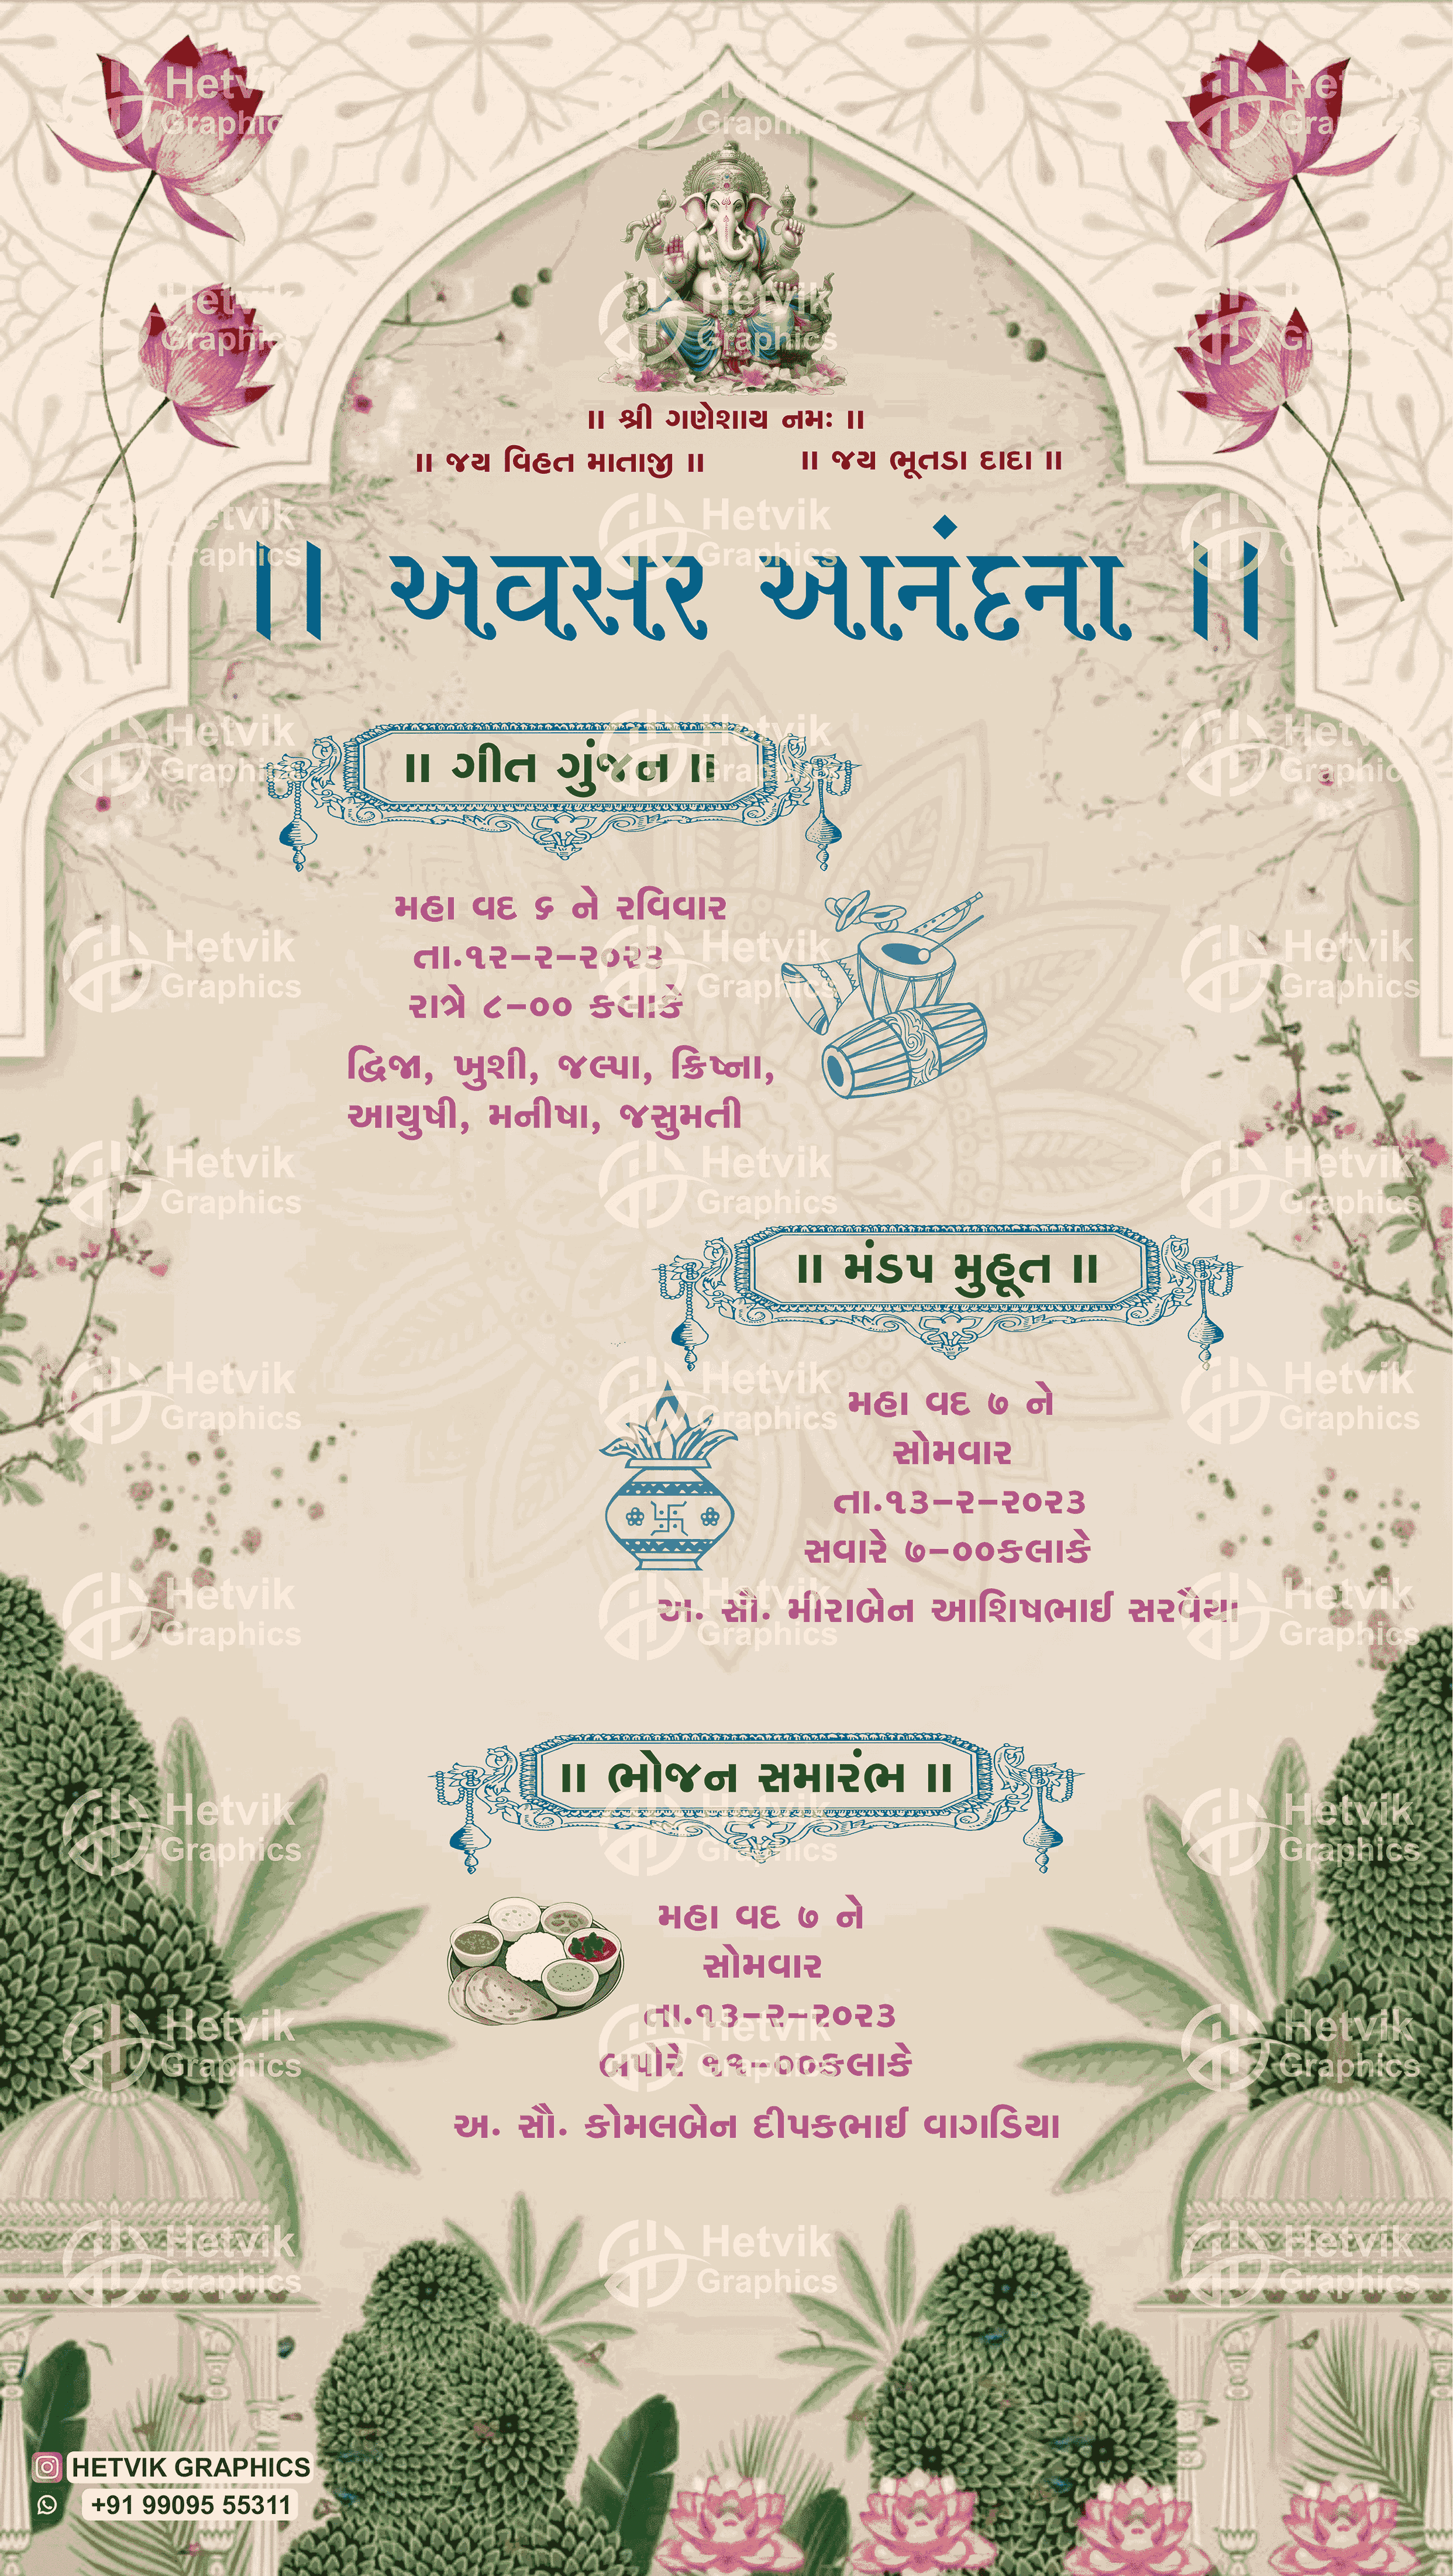 ॥ શ્રી ગણેશાય નમઃ ॥
॥ જય વિહત માતાજી ॥ ॥ જય ભૂતડા દાદા ॥
॥ અવસર આનંદના ॥
॥ ગીત ગુંજન ॥
મહા વદ ૬ ને રવિવાર
તા.૧૨-૨-૨૦૨૩
રાત્રે ૮-૦૦ કલાકે
દ્વિજા, ખુશી, જલ્પા, ક્રિષ્ના,
આયુષી, મનીષા, જસુમતી
॥ મંડપ મુહૂત ॥
મહા વદ ૭ ને
સોમવાર
તા.૧૩-૨-૨૦૨૩
સવારે ૭-૦૦કલાકે
અ. સૌ. મીરાબેન આશિષભાઈ સરવૈયા
॥ ભોજન સમારંભ ॥
મહા વદ ૭ ને
સોમવાર
તા.૧૩-૨-૨૦૨૩
બપોરે ૧૧-૦૦કલાકે
અ. સૌ. કોમલબેન દીપકભાઈ વાગડિયા
HETVIK GRAPHICS
+91 99095 55311
Hetvik
Graphics